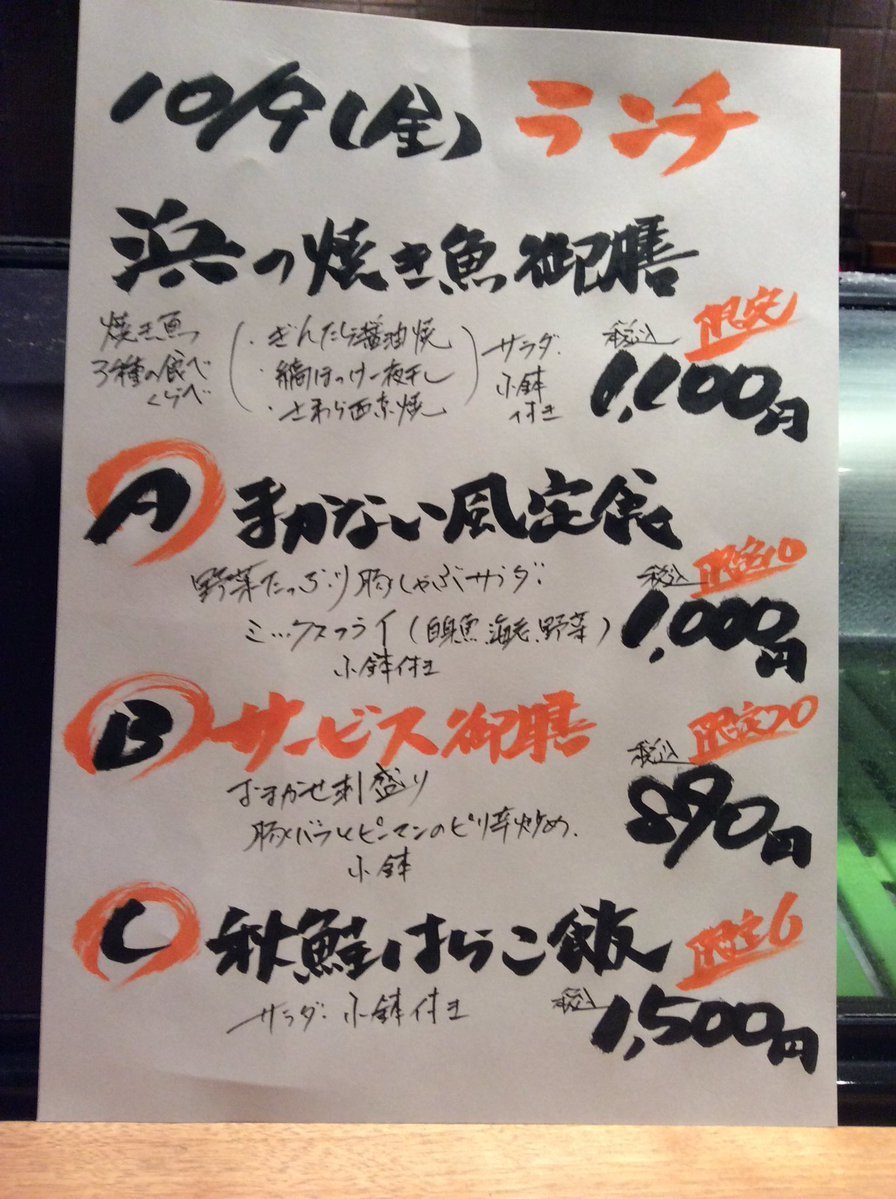 10/9(金) ランチ
浜の焼き魚御膳
限定
焼き魚
3種の食べ
くらべ
・ぎんだら醤油焼
・縞ほっけ一夜干し
・さわら西京焼
サラダ.
小鉢
付き
税込
1,100円
A まかない風定食
限定10
野菜たっぷり豚しゃぶサラダ.
ミックスフライ(白身魚.海老.野菜)
小鉢付き
税込
1,000円
B サービス御膳
限定20
おまかせ刺盛り
豚バラとピーマンのピリ辛炒め.
小鉢
税込
890円
C 秋鮭はらこ飯
限定6
サラダ.小鉢付き
税込
1,500円